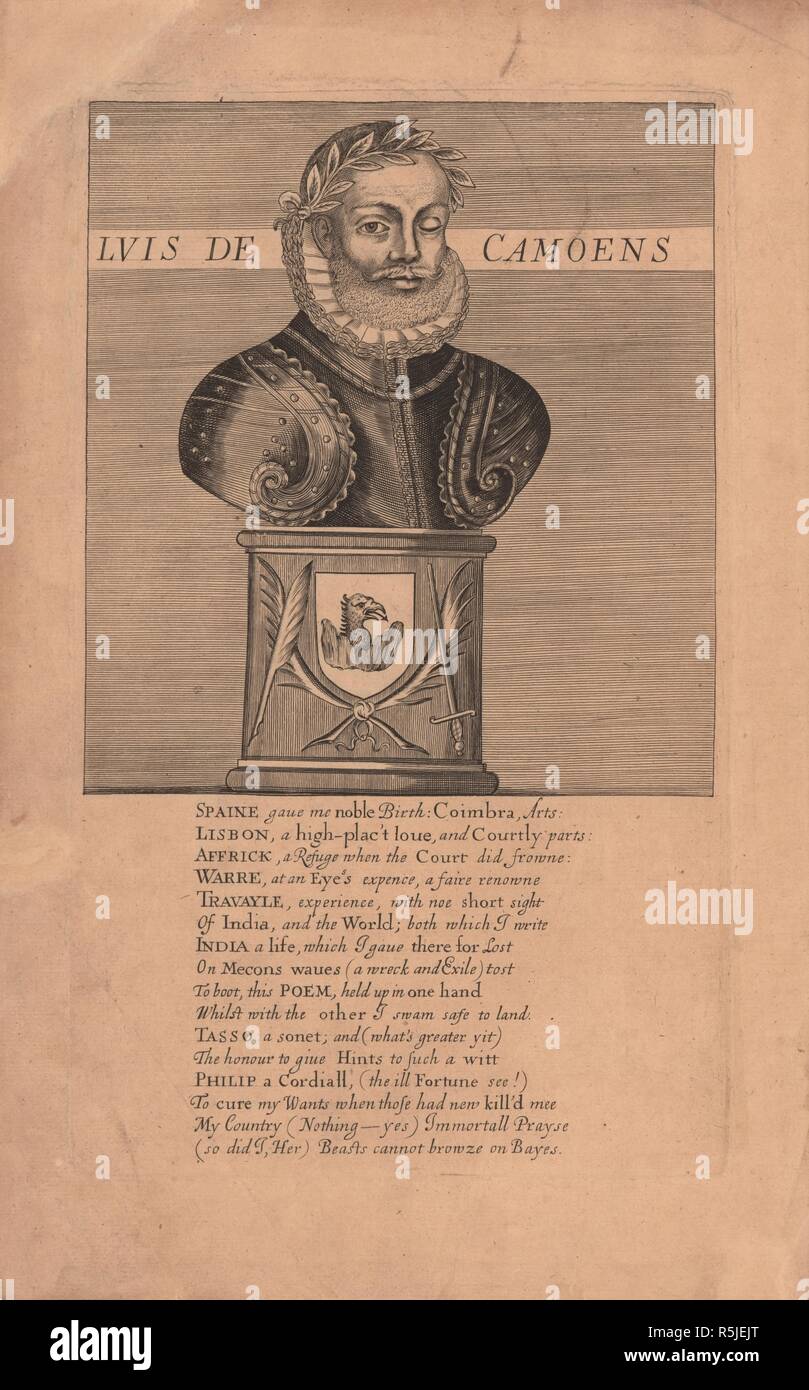 LVIS DE CAMOENS
SPAINE gaue me noble Birth: Coimbra, Arts:
LISBON, a high-plac't loue, and Courtly parts:
AFFRICK, a Refuge when the Court did frowne:
WARRE, at an Eye's expence, a faire renowne
TRAVAYLE, experience, with noe short sight
Of India, and the World; both which I write
INDIA a life, which I gaue there for Lost
On Mecons waues (a wreck and Exile) tost
To boot, this POEM, held up in one hand
Whilst with the other I swam safe to land.
TASSO, a sonet; and (what's greater yit)
The honour to giue Hints to such a witt
PHILIP a Cordiall, (the ill Fortune see!)
To cure my Wants when those had new kill'd mee
My Country (Nothing—yes) Immortall Prayse
(so did I, Her) Beasts cannot browze on Bayes.
alamy
Image ID: R5JEJT
www.alamy.com